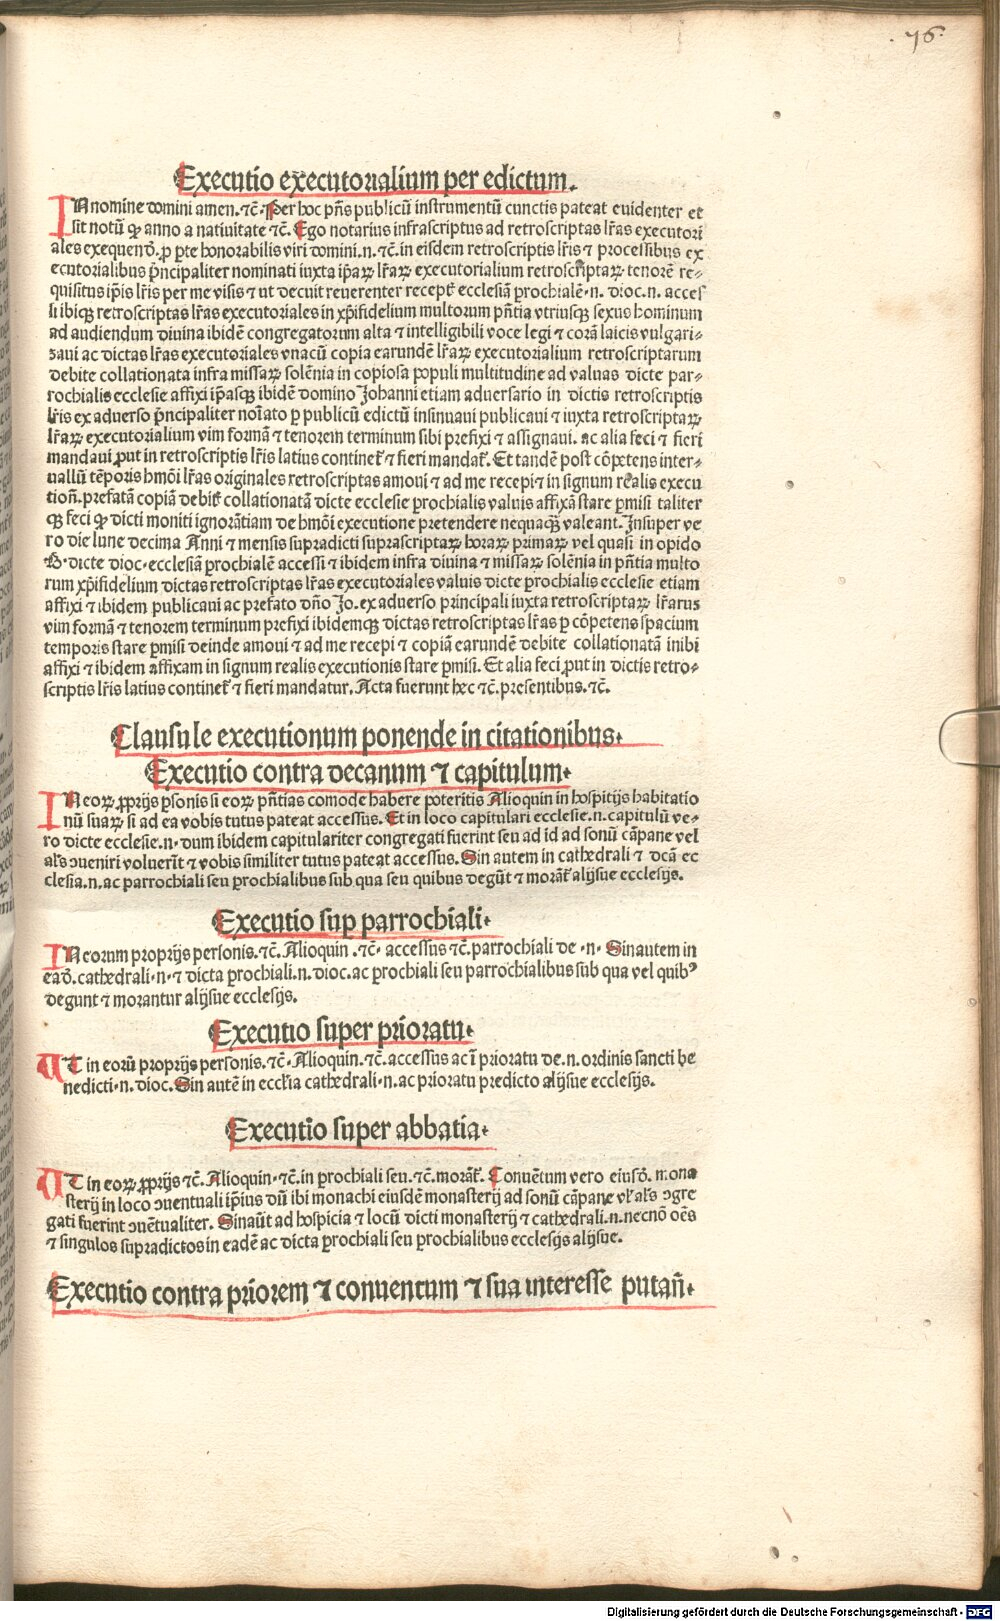 76.
Executio executorialium per edictum.
IN nomine domini amen. ⁊c̃. Per hoc pn̄s publicū instrumentū cunctis pateat euidenter et
sit notū ꝙ anno a natiuitate ⁊c̃. Ego notarius infrascriptus ad retroscriptas lr̄as executori
ales exequend̄. ꝓ ꝑte honorabilis viri domini .n. ⁊c̃. in eisdem retroscriptis lr̄is ⁊ processibus ex
ecutorialibus pͥncipaliter nominati iuxta ip̄aꝝ lr̄aꝝ executorialium retroscriptaꝝ tenorē re⸗
quisitus ip̄is lr̄is per me visis ⁊ ut decuit reuerenter recept̄ ecclesiā ꝑrochialē .n. dioc. n. acces
si ibiqꝫ retroscriptas lr̄as executoriales in xp̄ifidelium multorum pn̄tia vtriusqꝫ sexus hominum
ad audiendum diuina ibidē congregatorum alta ⁊ intelligibili voce legi ⁊ corā laicis vulgari⸗
zaui ac dictas lr̄as executoriales vnacū copia earundē lr̄aꝝ executorialium retroscriptarum
debite collationata infra missaꝝ solēnia in copiosa populi multitudine ad valuas dicte par⸗
rochialis ecclesie affixi ip̄asqꝫ ibidē domino Johanni etiam aduersario in dictis retroscriptis
lr̄is ex aduerso pͥncipaliter noīato ꝑ publicū edictū insinuaui publicaui ⁊ iuxta retroscriptaꝝ
lr̄aꝝ executorialium vim formā ⁊ tenorem terminum sibi prefixi ⁊ assignaui. ac alia feci ⁊ fieri
mandaui ꝓut in retroscriptis lr̄is latius continet̄ ⁊ fieri mandat̄. Et tandē post cōpetens inter⸗
uallū tēporis hmōi lr̄as originales retroscriptas amoui ⁊ ad me recepi ⁊ in signum realis execu
tion̄. prefatā copiā debit̄ collationatā dicte ecclesie ꝑrochialis valuis affixā stare ꝑmisi taliter
qꝫ feci ꝙ dicti moniti ignorātiam de hmōi executione pretendere nequaqꝫ valeant. Insuper ve
ro die lune decima Anni ⁊ mensis supradicti suprascriptaꝝ horaꝝ primaꝝ vel quasi in opido
B. dicte dioc. ecclesiā ꝑrochialē accessi ⁊ ibidem infra diuina ⁊ missaꝝ solēnia in pn̄tia multo
rum xp̄ifidelium dictas retroscriptas lr̄as executoriales valuis dicte ꝑrochialis ecclesie etiam
affixi ⁊ ibidem publicaui ac prefato dn̄o Jo. ex aduerso principali iuxta retroscriptaꝝ lr̄arus
vim formā ⁊ tenorem terminum prefixi ibidemqꝫ dictas retroscriptas lr̄as ꝑ cōpetens spacium
temporis stare ꝑmisi deinde amoui ⁊ ad me recepi ⁊ copiā earundē debite collationatā inibi
affixi ⁊ ibidem affixam in signum realis executionis stare ꝑmisi. Et alia feci ꝓut in dictis retro⸗
scriptis lr̄is latius continet̄ ⁊ fieri mandatur. Acta fuerunt hec ⁊c̃. presentibus. ⁊c̃.
Clausule executionum ponende in citationibus.
Executio contra decanum ⁊ capitulum.
IN eoꝝ ꝓprijs ꝑsonis si eoꝝ pn̄tias comode habere poteritis Alioquin in hospitijs habitatio
nū suaꝝ si ad ea vobis tutus pateat accessus. Et in loco capitulari ecclesie .n. capitulū ve⸗
ro dicte ecclesie .n. dum ibidem capitulariter congregati fuerint seu ad id ad sonū cāpane vel
al̄s ↄueniri voluerīt ⁊ vobis similiter tutus pateat accessus. Sin autem in cathedrali ⁊ dcā ec
clesia .n. ac parrochiali seu ꝑrochialibus sub qua seu quibus degūt ⁊ morāt̄ alijsue ecclesijs.
Executio suꝑ parrochiali.
IN eorum proprijs personis. ⁊c̃. Alioquin . ⁊c̃. accessus ⁊c̃. parrochiali de .n. Sinautem in
ead̄. cathedrali .n. ⁊ dicta ꝑrochiali .n. dioc. ac ꝑrochiali seu parrochialibus sub qua vel quibꝰ
degunt ⁊ morantur alijsue ecclesijs.
Executio super prioratu.
UT in eorū proprijs personis. ⁊c̃. Alioquin. ⁊c̃. accessus ac ī prioratu de .n. ordinis sancti be
nedicti .n. dioc. Sin autē in eccl̄ia cathedrali .n. ac prioratu predicto alijsue ecclesijs.
Executio super abbatia.
UT in eoꝝ ꝓprijs ⁊c̃. Alioquin. ⁊c̃. in ꝑrochiali seu. ⁊c̃. morāt̄. Conuētum vero eiusd̄. mona
sterij in loco ↄuentuali ip̄ius dū ibi monachi eiusdē monasterij ad sonū cāpane vl̄ al̄s ↄgre
gati fuerint ↄuētualiter. Sinaūt ad hospicia ⁊ locū dicti monasterij ⁊ cathedrali .n. necnō oēs
⁊ singulos supradictos in eadē ac dicta ꝑrochiali seu ꝑrochialibus ecclesijs alijsue.
Executio contra priorem ⁊ conuentum ⁊ sua interesse putan̄.
Digitalisierung gefördert durch die Deutsche Forschungsgemeinschaft - DFG